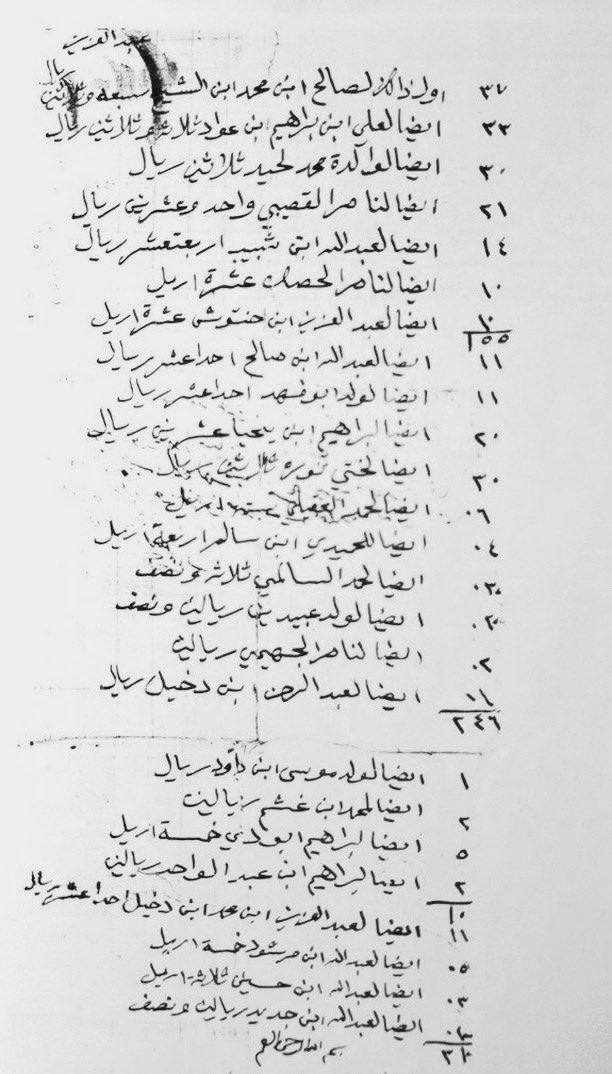 عبد العزيز
ريال
٣٧ اول ذالك لصالح ابن محمد ابن الشيخ سبعه وثلاثين
٣٣ ايضا لعلي ابن ابراهيم ابن عواد ثلاثه وثلاثين ريال
٣٠ ايضا لوالدة محمد لحيد ثلاثين ريال
٢١ ايضا لناصر القصيبي واحد وعشرين ريال
١٤ ايضا لعبد الله ابن شبيب اربعتعشر ريال
١٠ ايضا لناصر الحصان عشرة اريل
١٠ ايضا لعبد العزيز ابن حنتوش عشرة اريل
١٥٥
١١ ايضا لعبد الله ابن صالح احد اعشر ريال
١١ ايضا لولد ابو فهد احد اعشر ريال
٢٠ ايضا لبراهيم ابن يحيا عشرين ريال
٣٠ ايضا لختي نوره ثلاثين ريال
٠٦ ايضا لحمد العقيلي ستة اريل
٠٤ ايضا للحميدي ابن سالم اربعة اريل
ايضا لحمد السالمي ثلاثه ونصف
ايضا لولد عبيد ريالين ونصف
٠٢ ايضا لناصر الجهيمي ريالين
٠١ ايضا لعبد الرحمن ابن دخيل ريال
٢٤٦
١ ايضا لولد موسى ابن داود ريال
٢ ايضا لمحمد ابن غشم ريالين
٥ ايضا لبراهيم ابو دي خمسة اريل
٢ ايضا لبراهيم ابن عبد الواحد ريالين
١٠
١١ ايضا لعبد العزيز ابن محمد ابن دخيل احد اعشر ريال
٠٥ ايضا لعبد الله ابن مرشود خمسة اريل
٠٣ ايضا لعبد الله ابن حسين ثلاثة اريل
ايضا لعبد الله ابن جديد ريالين ونصف
بسم الله